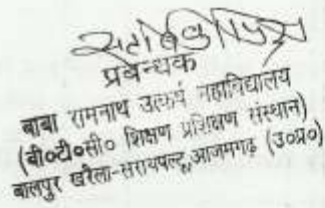 प्रबन्धक
बाबा रामनाथ उत्कर्ष महाविद्यालय
(बी०टी०सी० शिक्षण प्रशिक्षण संस्थान)
बालपुर खरैला-सरायपल्टू,आजमगढ़ (उ०प्र०)